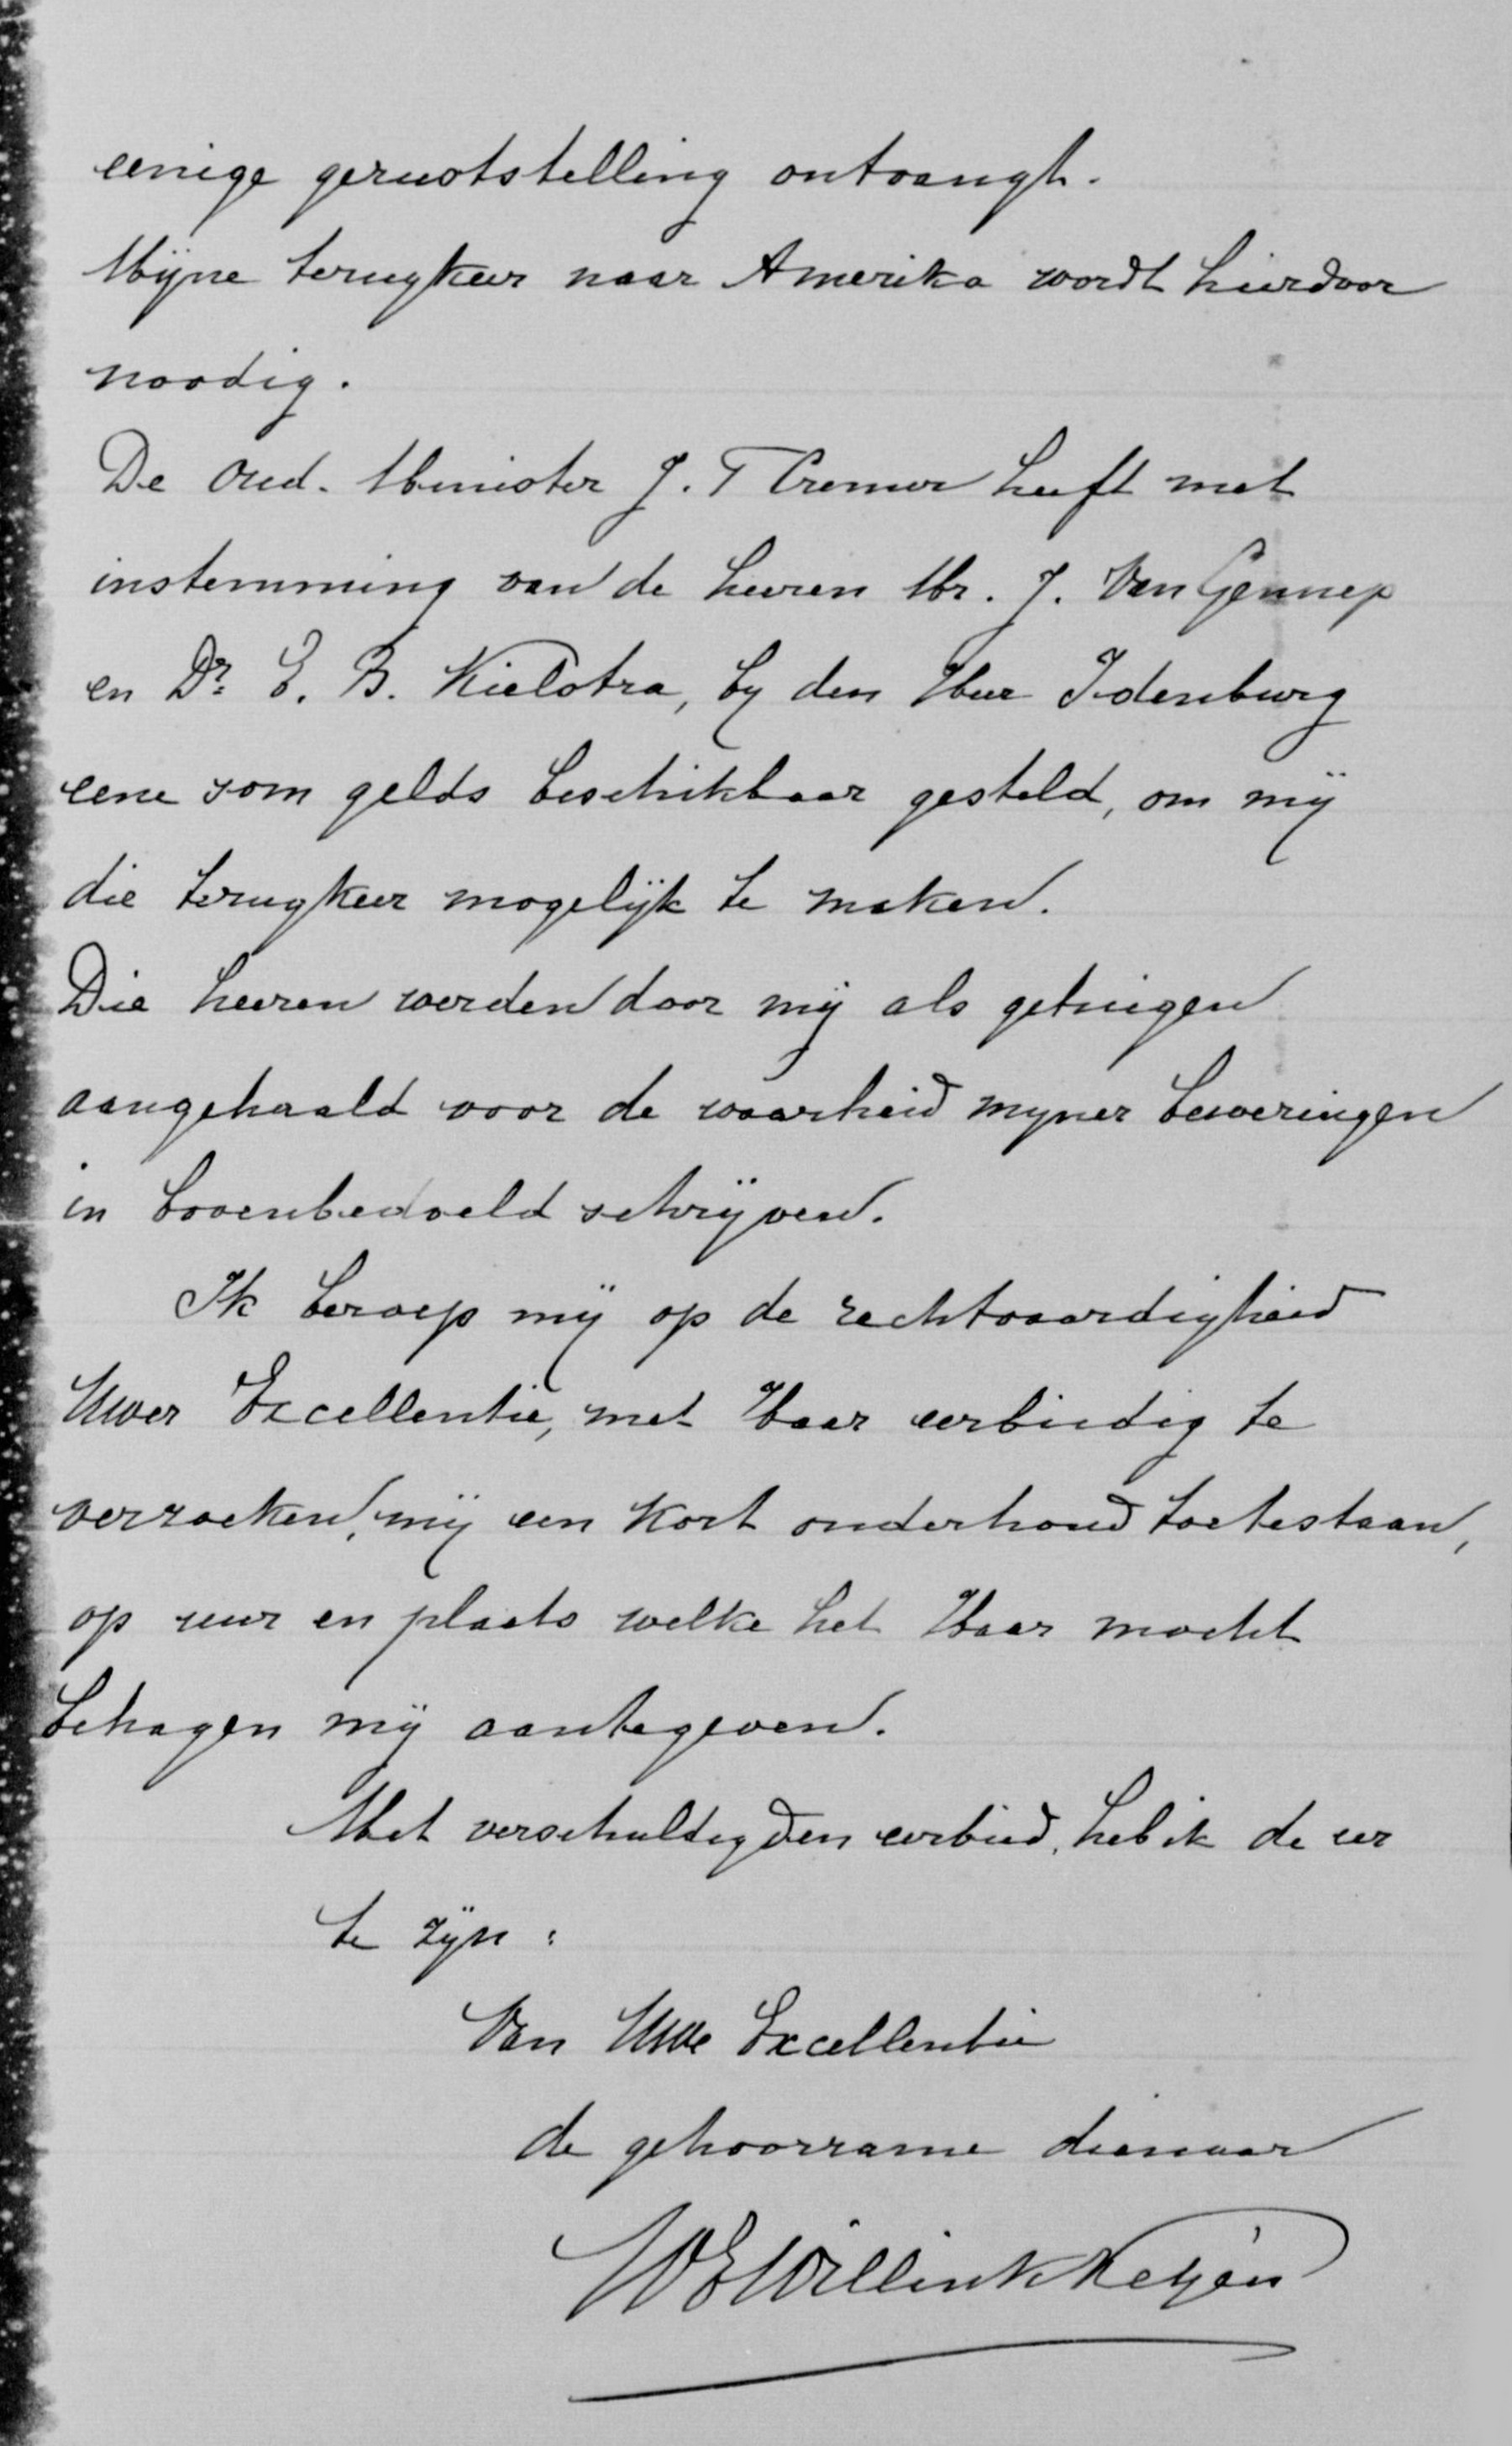 eenige geruststelling ontvangt.
Mijne terugkeer naar Amerika wordt hierdoor
noodig.
De oud-Minister J. T Cremer heeft met
instemming van de heeren Mr. J. Van Gennep
en Dr. E. B. Kielstra, by den Heer Idenburg
eene som gelds beschikbaar gesteld, om mij
die terugkeer mogelijk te maken.
Die heeren werden door mij als getuigen
aangehaald voor de waarheid myner beweringen
in bovenbedoeld schrijven.
Ik beroep mij op de rechtvaardigheid
Uwer Excellentie, met Haar eerbiedig te
verzoeken, mij een kort onderhoud toetestaan,
op uur en plaats welke het Haar mocht
behagen mij aantegeven.
Met verschuldigden eerbied, heb ik de eer
te zijn:
Van Uwe Excellentie
de gehoorzame dienaar
W E Willink Ketjen